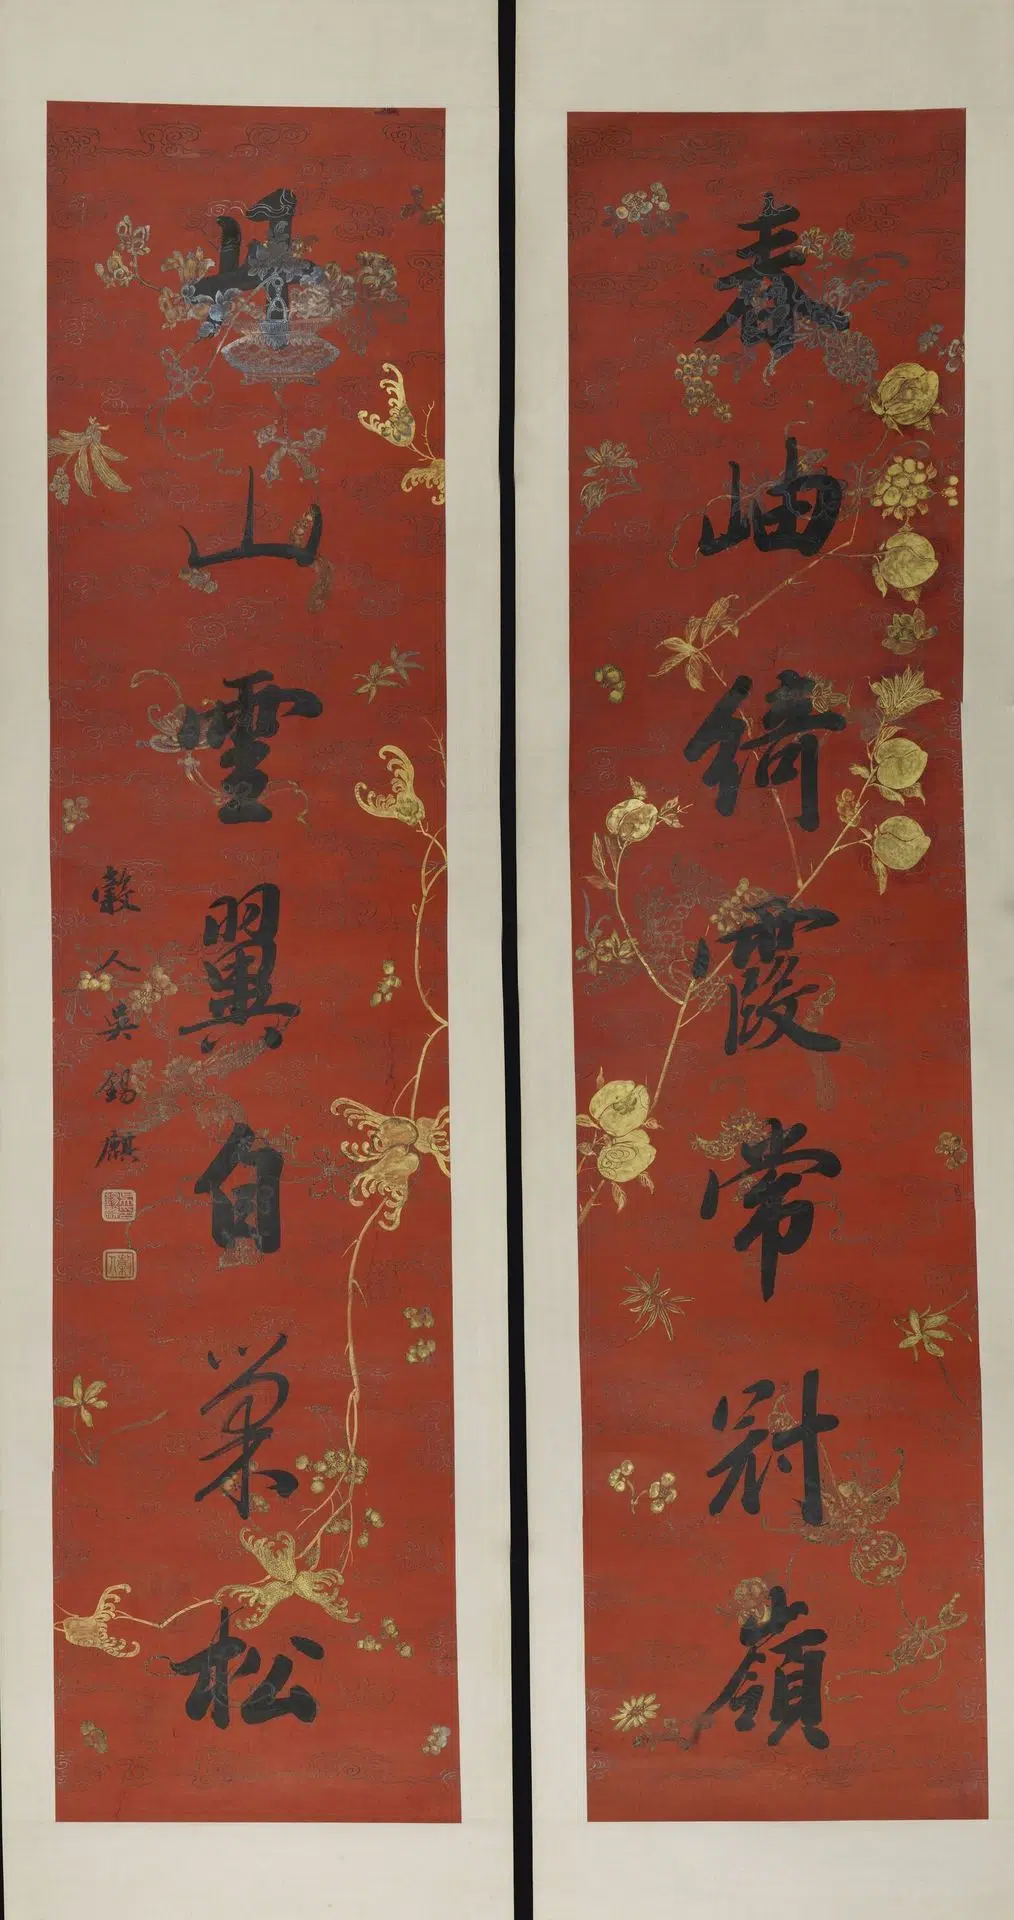 春岫綺霞常冠嶺
丹山靈翼自巢松
穀人吳錫麒